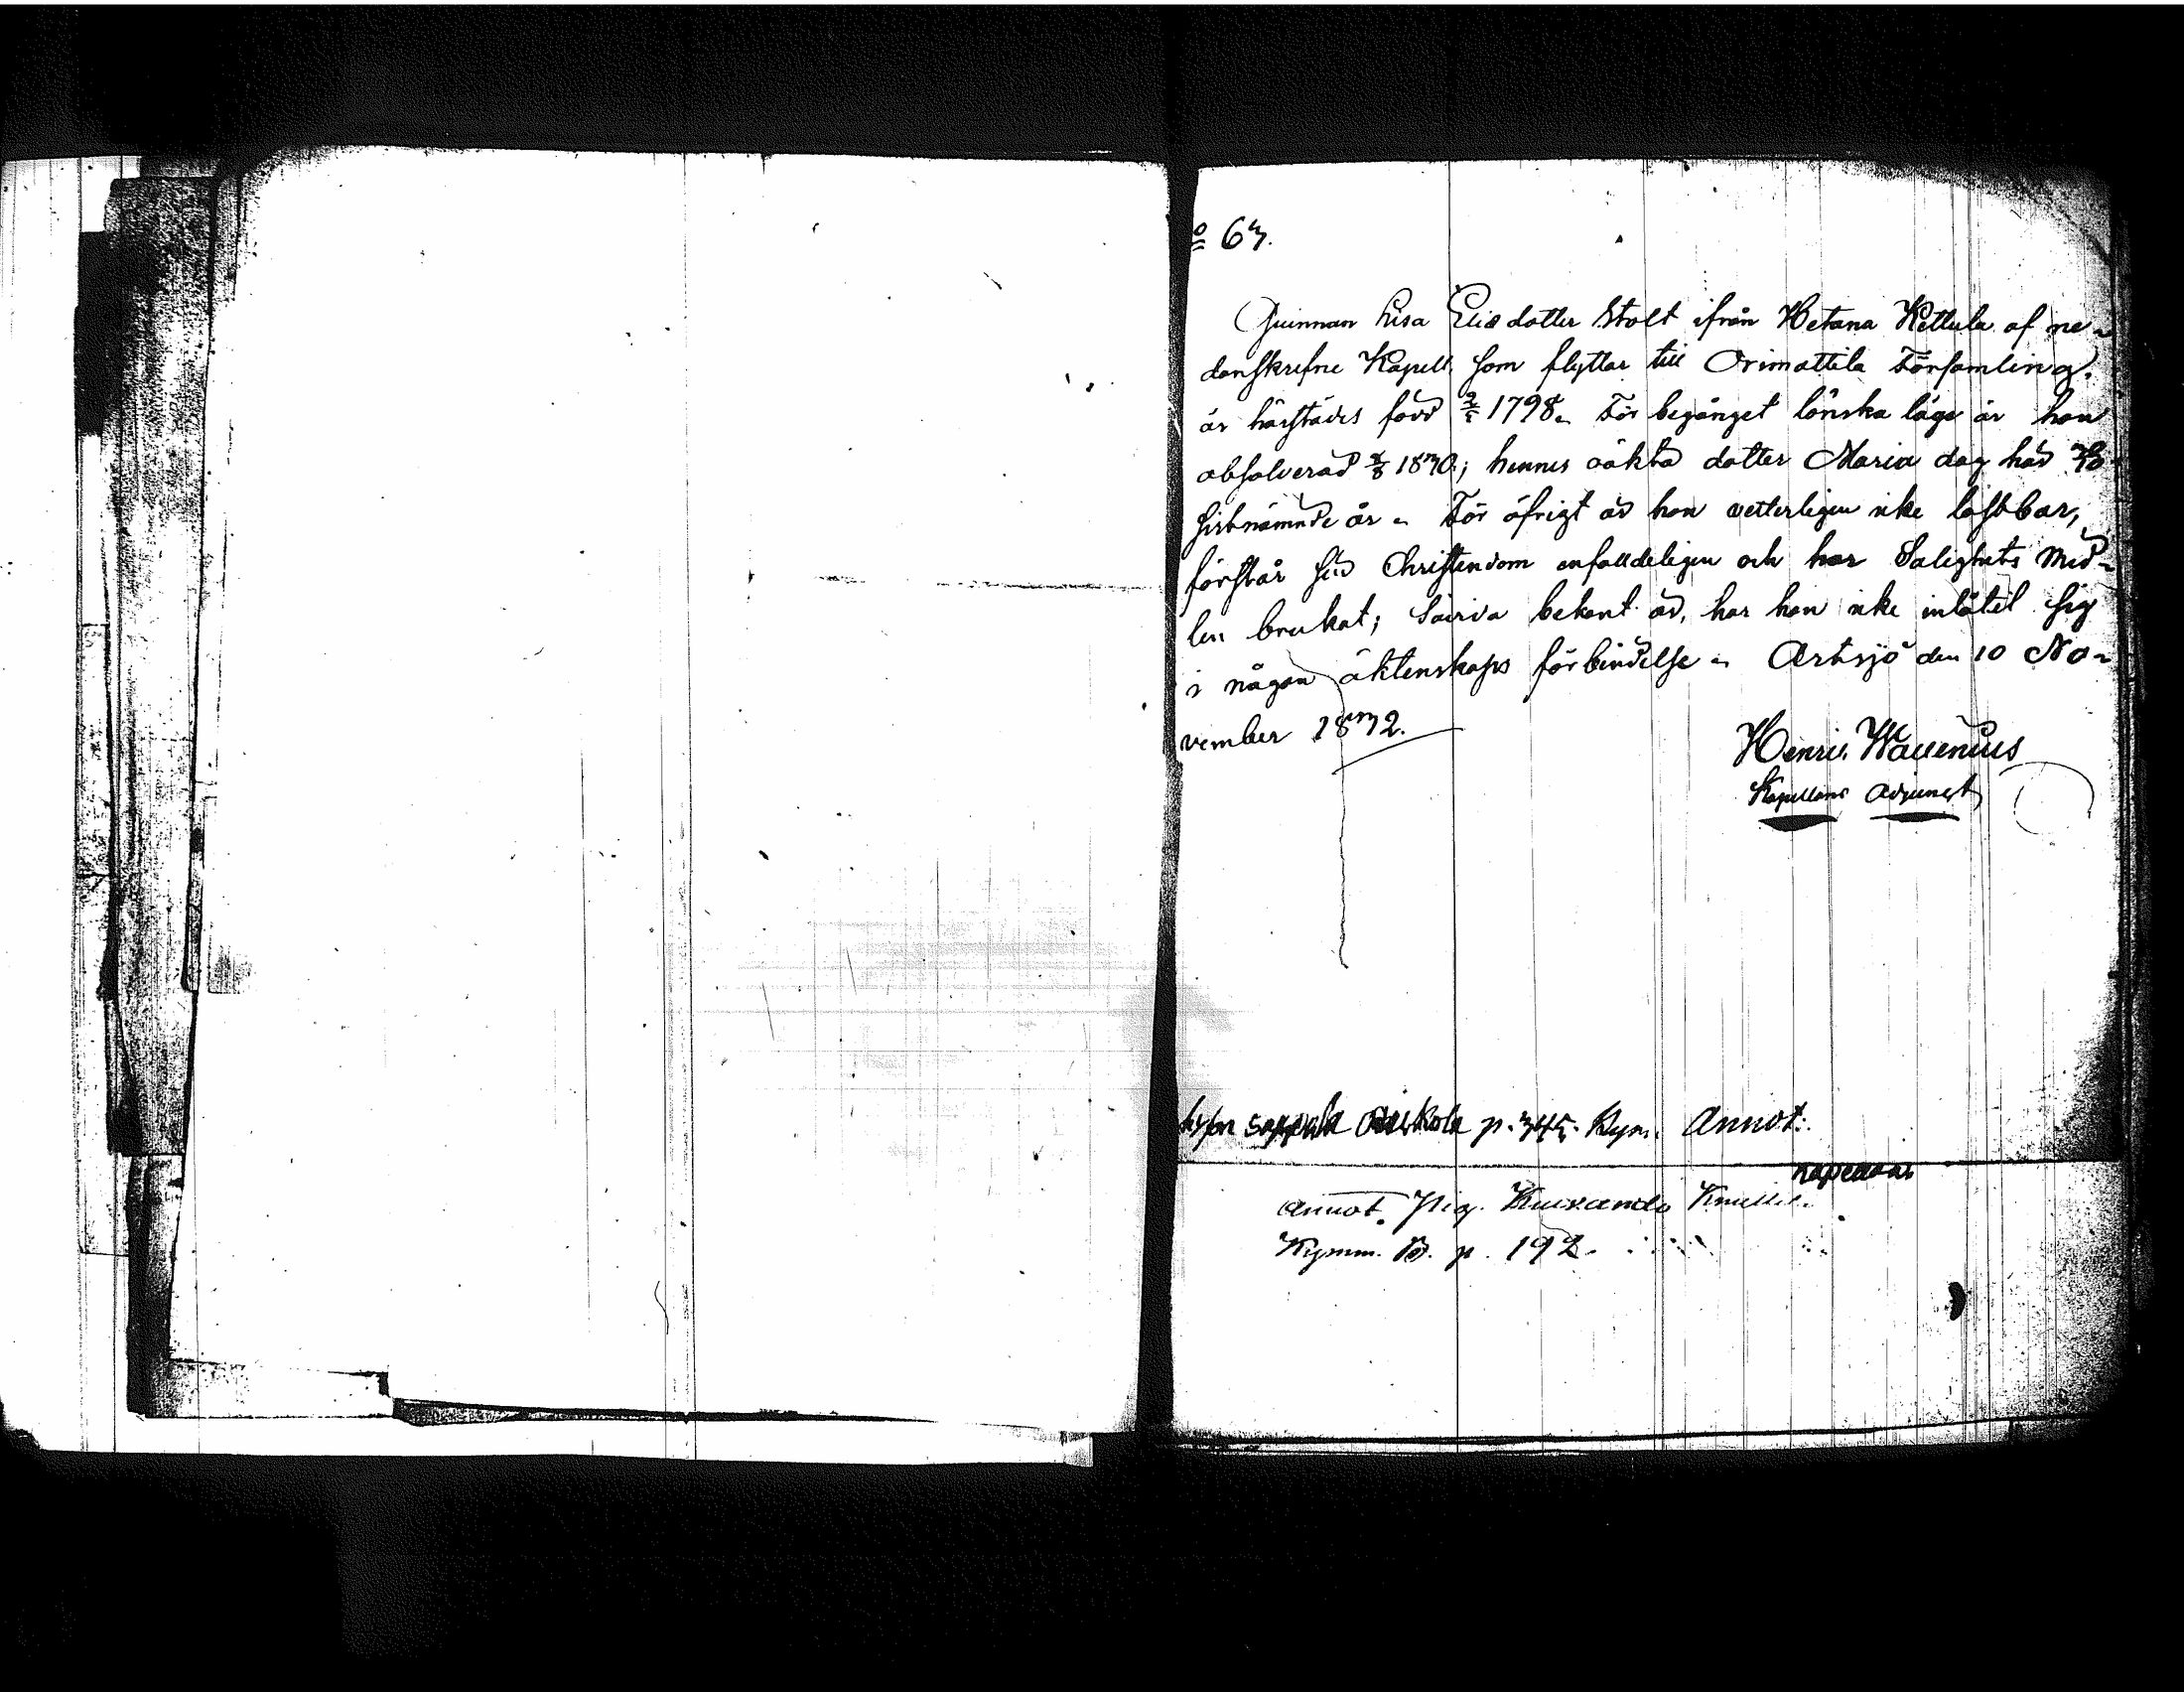 № 63.
Quinnan Lisa Elias dotter Stolt ifrån Hetana Kettula af ne-
danskrefne Kapell, som flyttar till Orimattila Församling,
är härstädes född 1798. För begånget lönska läge är hon
absolverad 1830; hennes oäkta dotter Maria
sistnämnde år. För öfrigt är hon vetterligen icke lastbar,
förstår sin Christendom enfaldeligen och har Salighets Med-
len brukat; Såvida bekant är, har hon icke inlåtit sig
i någon äktenskaps förbindelse. Artsjö den 10 No-
vember 1832.
Henric. Wallenius
Kapellans Adjunct
p. 345. Kym. Annot:
Kapellans
Annot. Pig. Kuivando
Kymm. B. p. 192.